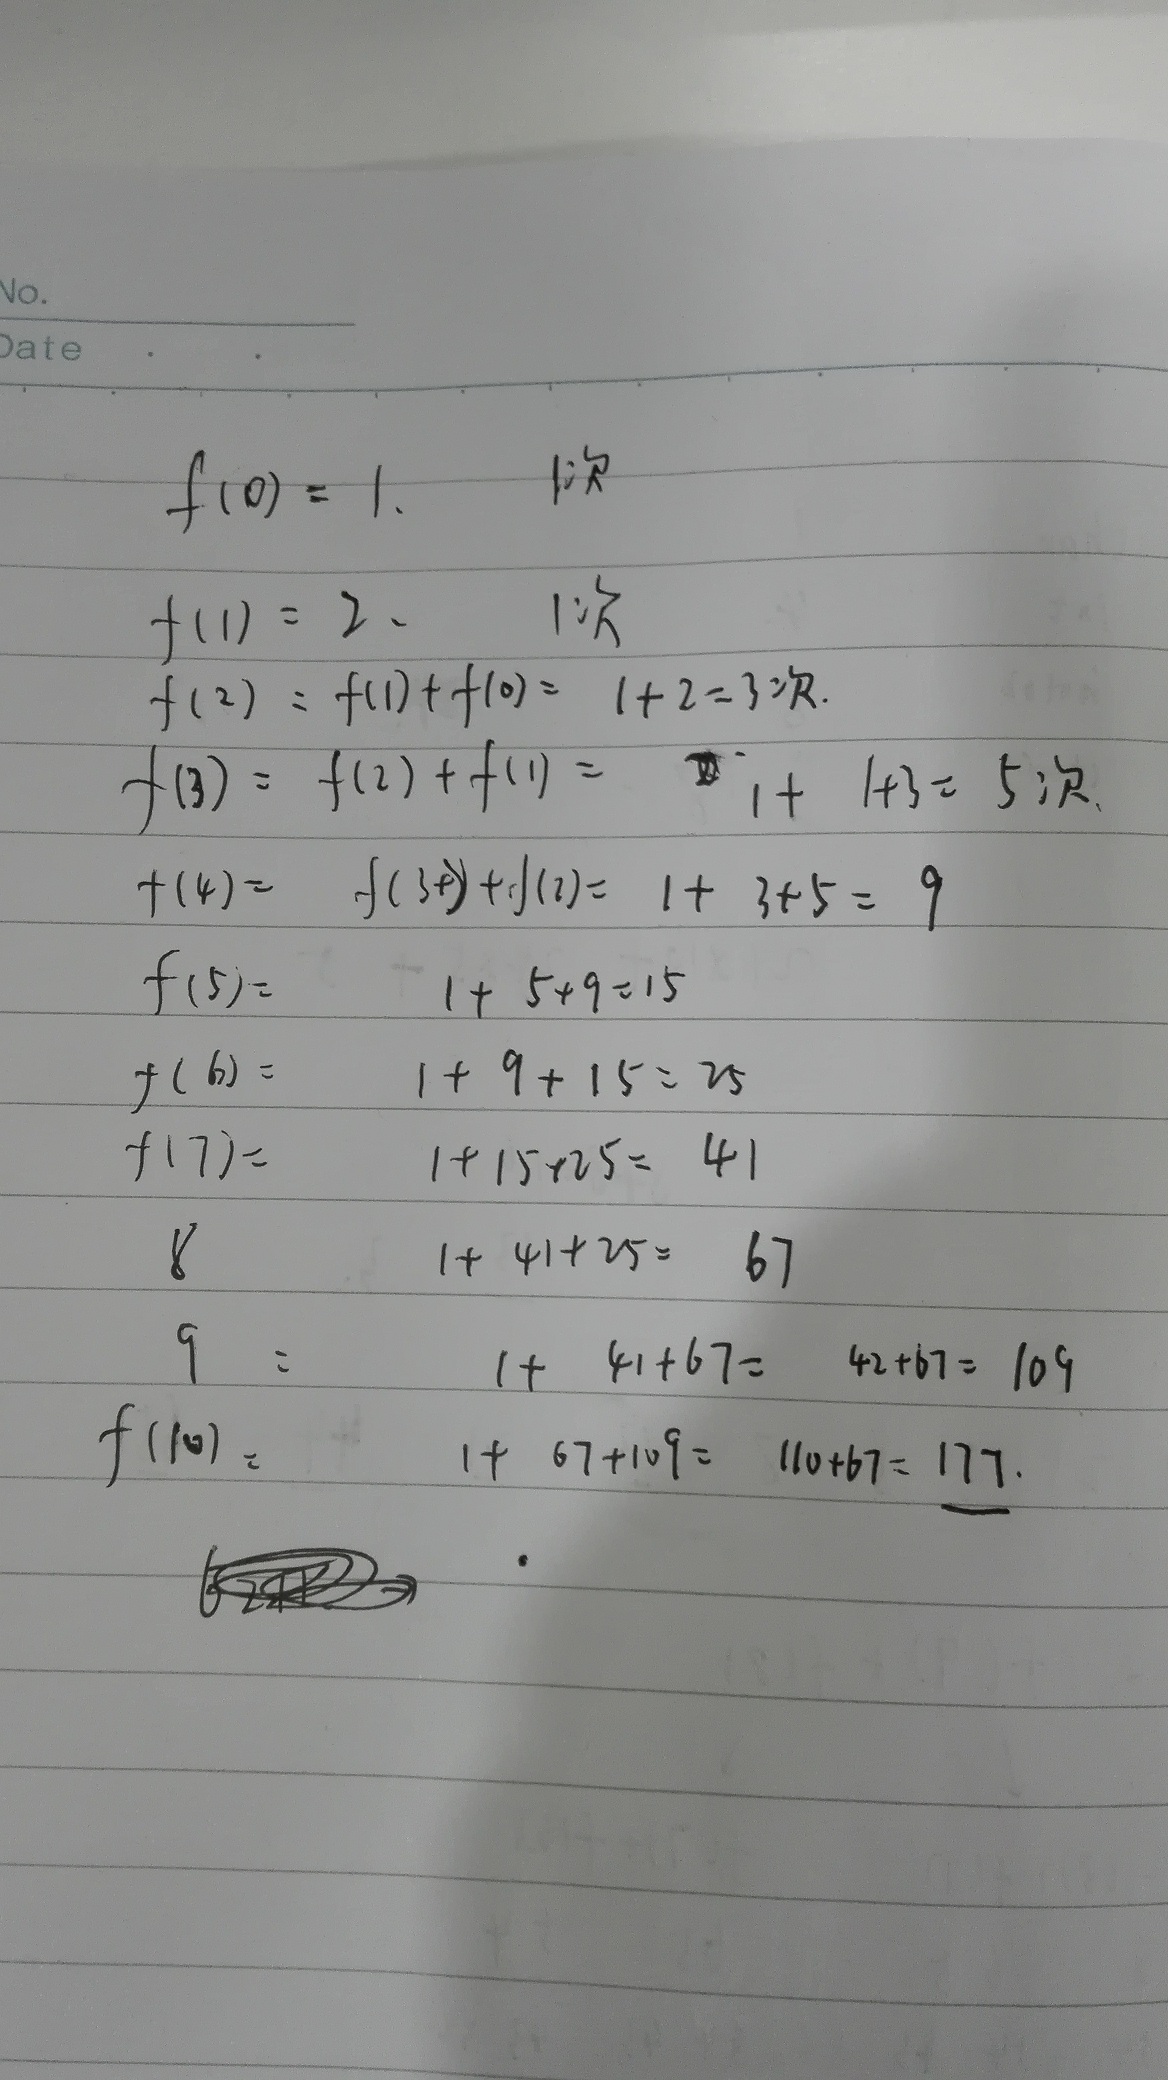 No.
Date
f(0) = 1. 1次
f(1) = 2. 1次
f(2) = f(1)+f(0) = 1+2=3次.
f(3) = f(2)+f(1) = 1+ 1+3= 5次.
f(4)= f(3)+f(2)= 1+ 3+5= 9
f(5)= 1+ 5+9=15
f(6)= 1+ 9+15=25
f(7)= 1+15+25= 41
8 1+ 41+25= 67
9 = 1+ 41+67= 42+67= 109
f(10)= 1+ 67+109= 110+67= 177.